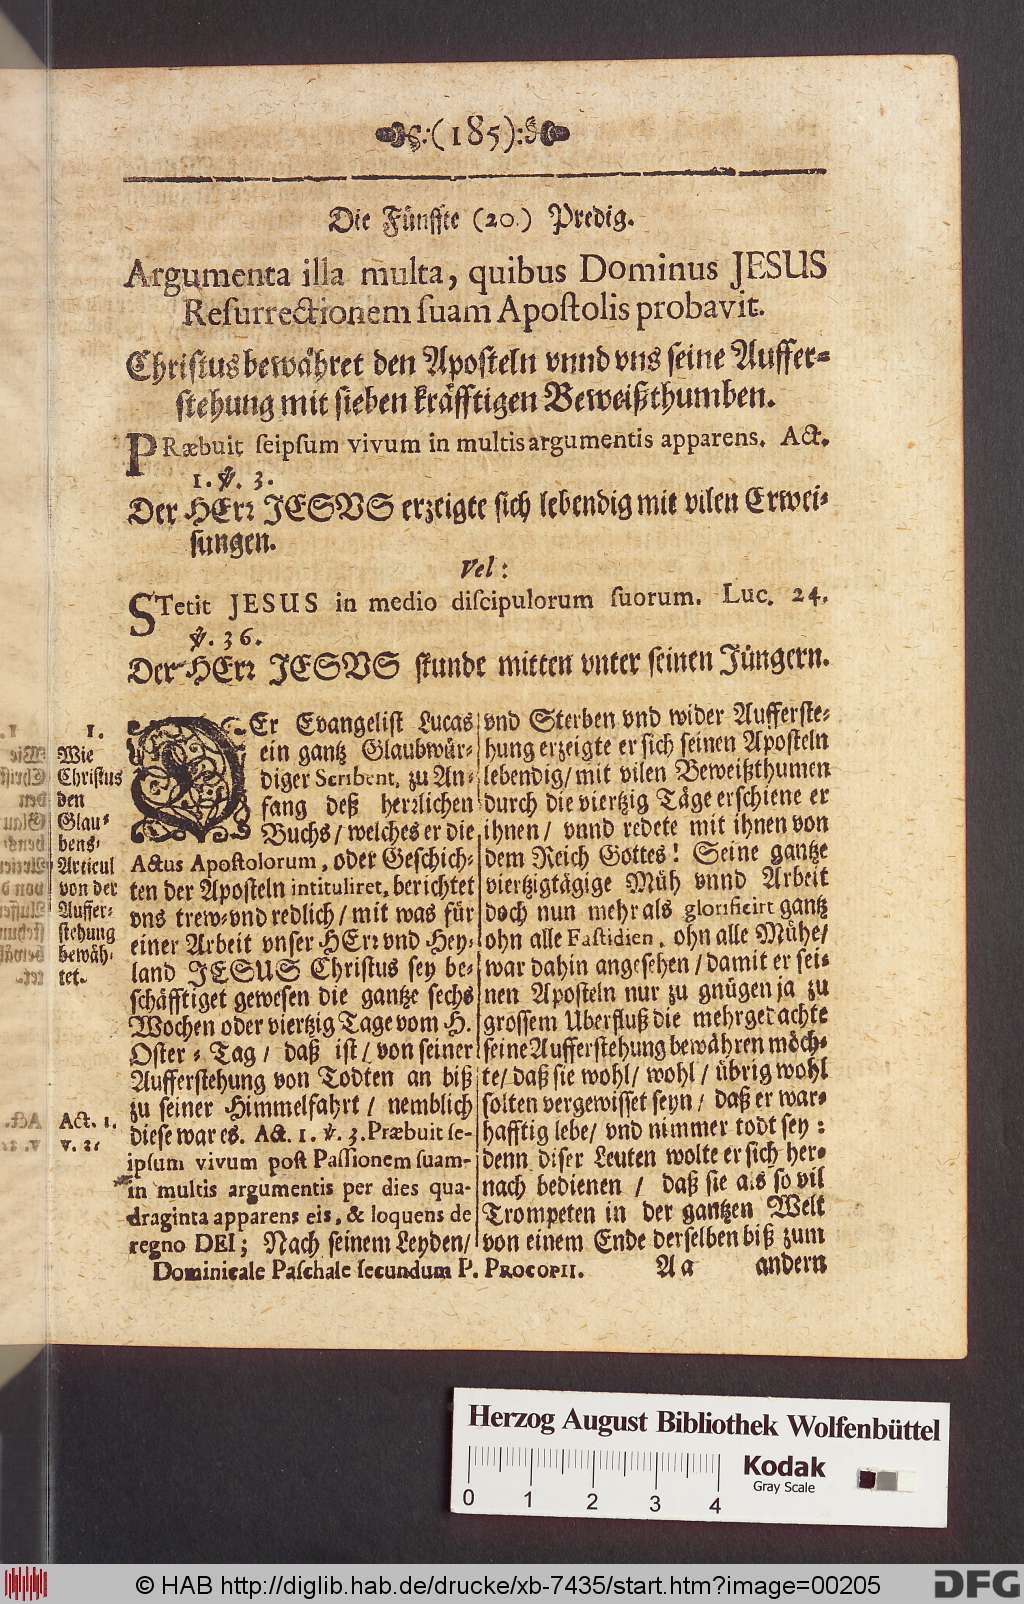 (185)
Die Fünffte (20.) Predig.
Argumenta illa multa, quibus Dominus JESUS
Resurrectionem suam Apostolis probavit.
Christus bewähret den Aposteln vnnd vns seine Auffer-
stehung mit sieben kräfftigen Beweißthumben.
PRæbuit seipsum vivum in multis argumentis apparens. Act.
1. ℣. 3.
Der HErr JESVS erzeigte sich lebendig mit vilen Erwei-
sungen.
Vel:
STetit JESUS in medio discipulorum suorum. Luc. 24.
℣. 36.
Der HErr JESVS stunde mitten vnter seinen Jüngern.
1.
Wie
Christus
den
Glau-
bens-
Articul
von der
Auffer-
stehung
bewäh-
tet.
Act. 1.
v. 3.
DEr Evangelist Lucas
ein gantz Glaubwür-
diger Scribent, zu An-
fang deß herrlichen
Buchs / welches er die
Actus Apostolorum, oder Geschich-
ten der Aposteln intituliret, berichtet
vns trew- vnd redlich / mit was für
einer Arbeit vnser HErr vnd Hey-
land JESUS Christus sey be-
schäfftiget gewesen die gantze sechs
Wochen oder viertzig Tage vom H.
Oster-Tag / daß ist / von seiner
Aufferstehung von Todten an biß
zu seiner Himmelfahrt / nemblich
diese war es. Act. 1. ℣. 3. Præbuit se-
ipsum vivum post Passionem suam
in multis argumentis per dies qua-
draginta apparens eis, & loquens de
regno DEI; Nach seinem Leyden /
vnd Sterben vnd wider Aufferste-
hung erzeigte er sich seinen Aposteln
lebendig / mit vilen Beweißthumen
durch die viertzig Täge erschiene er
ihnen / vnnd redete mit ihnen von
dem Reich Gottes! Seine gantze
viertzigtägige Müh vnnd Arbeit
doch nun mehr als glorificirt gantz
ohn alle Fastidien, ohn alle Mühe /
war dahin angesehen / damit er sei-
nen Aposteln nur zu gnügen ja zu
grossem Uberfluß die mehrgedachte
seine Aufferstehung bewähren möch-
te / daß sie wohl / wohl / übrig wohl
solten vergewisset seyn / daß er war-
hafftig lebe / vnd nimmer todt sey:
denn diser Leuten wolte er sich her-
nach bedienen / daß sie als so vil
Trompeten in der gantzen Welt
von einem Ende derselben biß zum
Dominicale Paschale secundum P. PROCOPII. Aa andern
Herzog August Bibliothek Wolfenbüttel
0 1 2 3 4
Kodak
Gray Scale
© HAB http://diglib.hab.de/drucke/xb-7435/start.htm?image=00205
DFG